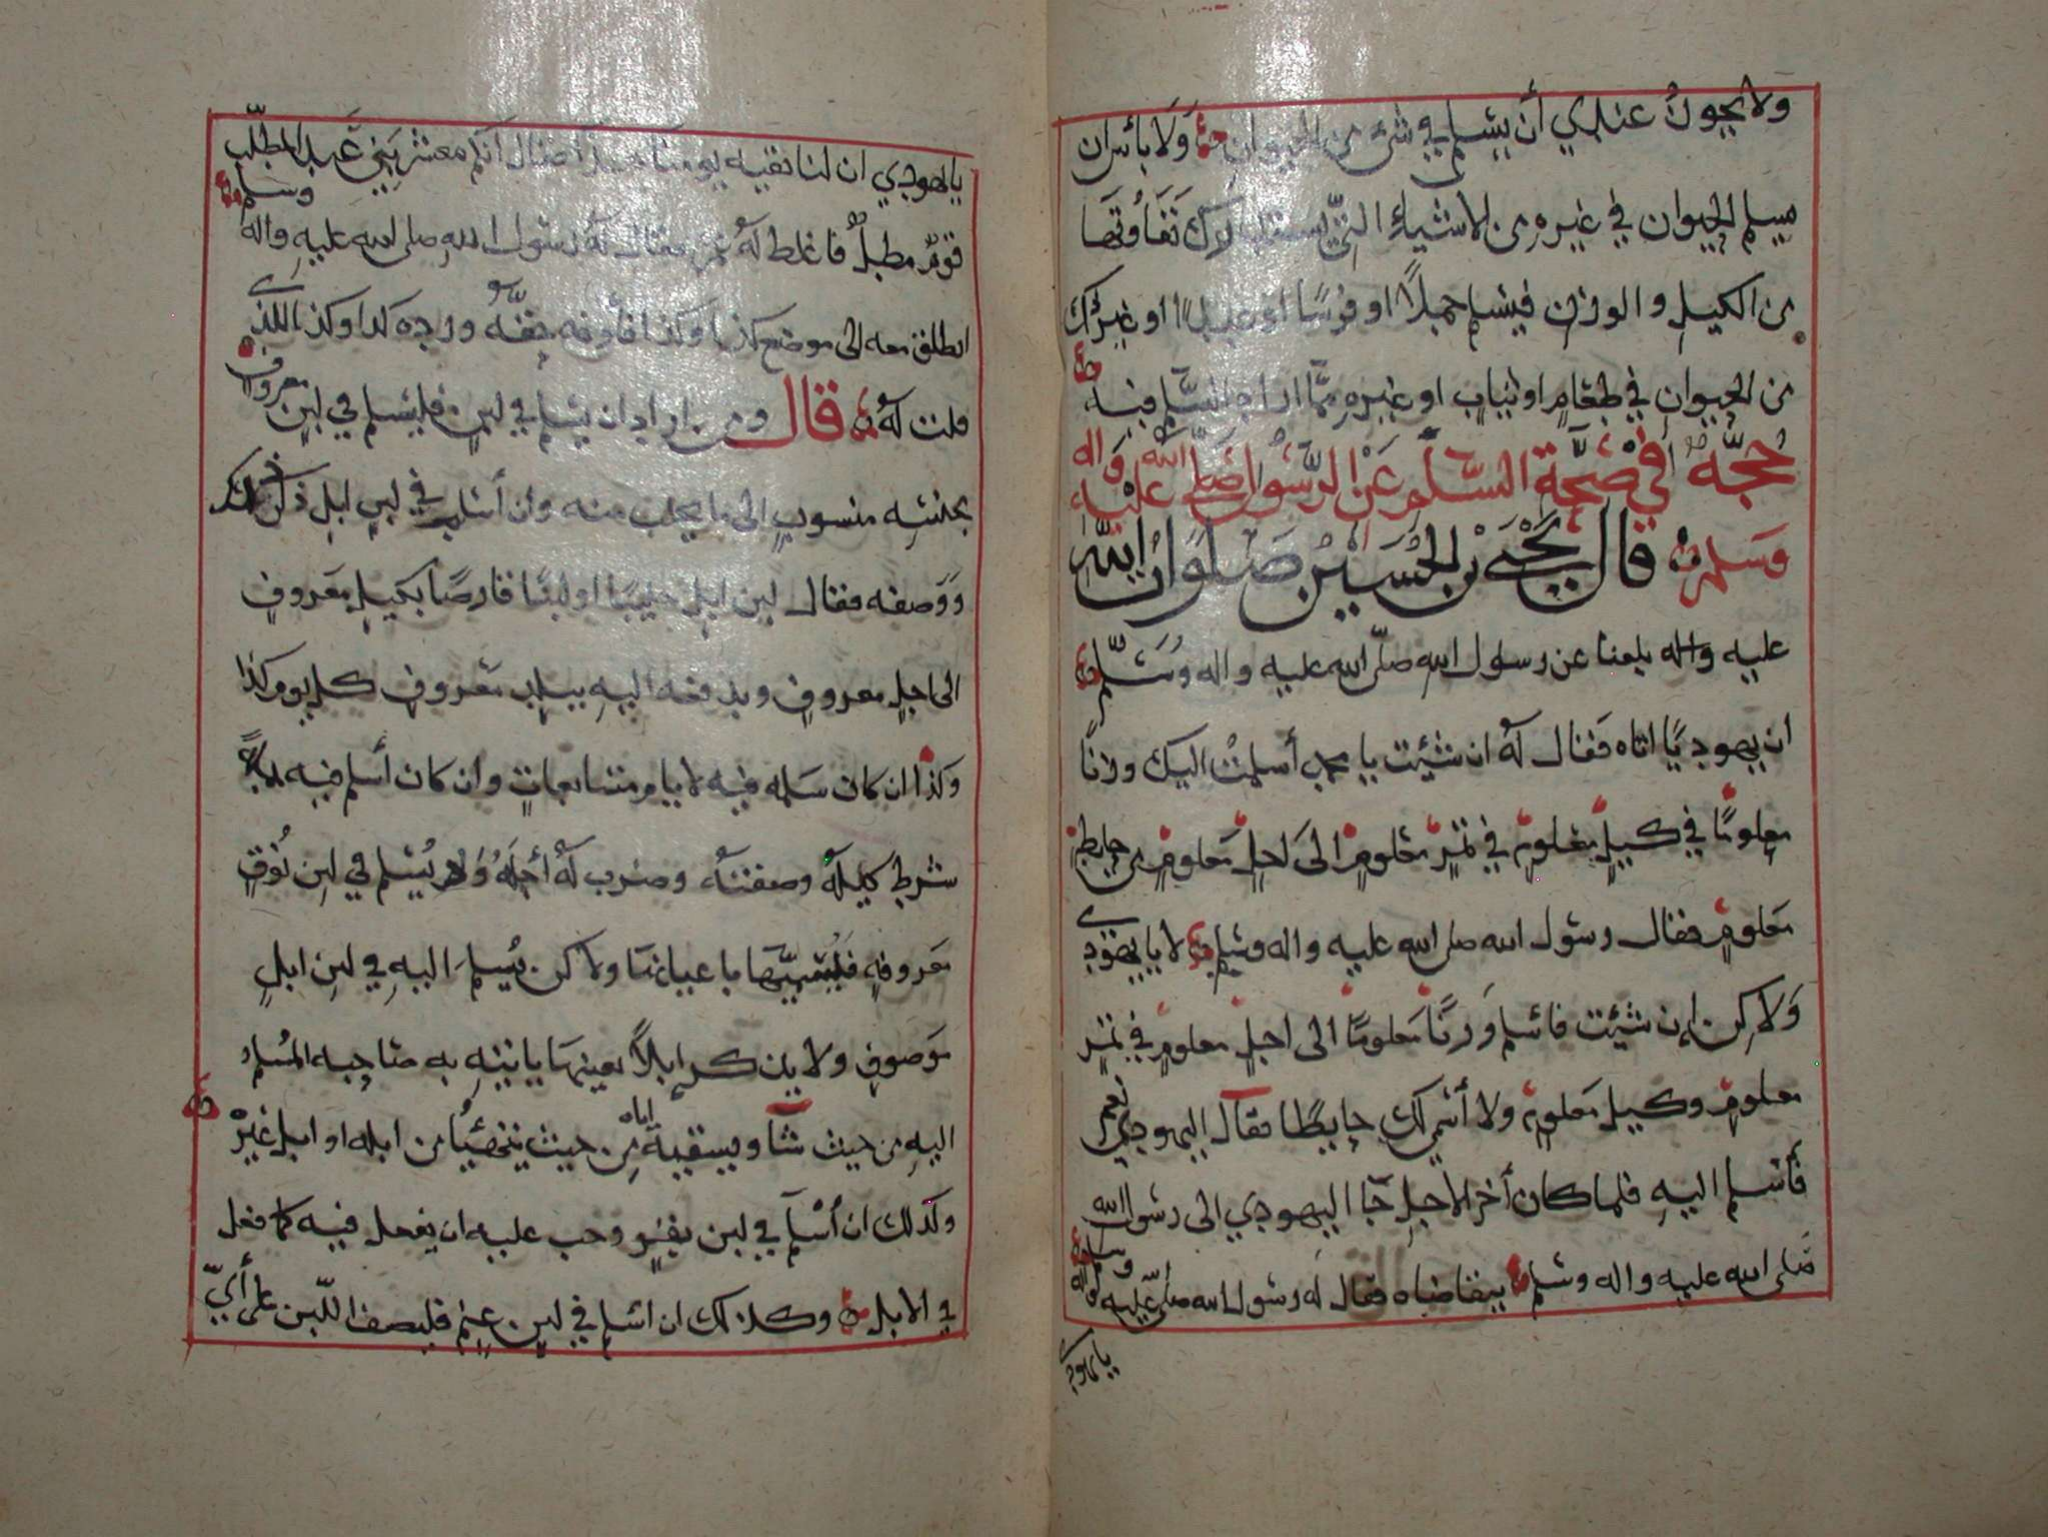 ولا يجوز عندي أن يسلم في شيء من الحيوان ولا بأس ان
يسلم الحيوان في غيره من الاشياء التي يستقل لدرك تفاوتها
من الكيل والوزن فيسلم جملاً او فرسًا او عبدًا او غير ذلك
من الحيوان في طعام او ثياب او غيره مما اراد فيسلم فيه
حجة في صحة السلم عن الرسول صلى الله عليه واله
وسلم قال يحيى بن الحسين صلوات الله
عليه واله بلغنا عن رسول الله صلى الله عليه واله وسلم
ان يهوديًا اتاه فقال له ان شئت يا محمد أسلمت اليك وزنًا
معلومًا في كيل معلوم في تمر معلوم الى اجل معلوم من حايط
معلوم فقال رسول الله صلى الله عليه واله وسلم لا يا يهودي
ولاكن إن شئت فاسلم وزنًا معلومًا الى اجل معلوم في تمر
معلوم وكيل معلوم ولا أسمي لك حايطًا فقال اليهودي نعم
فأسلم اليه فلما كان أخر الاجل جا اليهودي الى رسول الله
صلى الله عليه واله وسلم يتقاضاه فقال له رسول الله صلى الله عليه واله وسلم
يا يهودي
يا يهودي ان لنا بقية يومنا هذا فقال انكم معشر بني عبد المطلب
قوم مطل فاغلظ له عمر فقال له رسول الله صلى الله عليه واله وسلم
انطلق معه الى موضع كذا وكذا فأوفه حقه وزده كذا وكذا للذي
قلت له قال ومن اراد ان يسلم في لبن فليسلم في لبن معروف
بجنسه منسوب الى ما يحلب منه وان أسلم في لبن ابل ذكر ذلك
ووصفه فقال لبن ابل حليبًا او لبنًا قارصًا بكيل معروف
الى اجل معروف ويدفعه اليه ببلد معروف كل يوم كذا
وكذا ان كان سلمه فيه لايام متتابعات وان كان أسلم فيه
شرط كيله وصفته وضرب له أجله ولا يسلم في لبن نوق
معروفه فيسميها باعيانها ولاكن يسلم اليه في لبن ابل
موصوف ولا يذكر ابلاً بعينها ياتيه به صاحبه المسلم
اليه من حيث شا ويسقيه اياه من حيث تهيأ من ابله او ابل غيره
وكذلك ان أسلم في لبن بقر وجب عليه ان يفعل فيه كما فعل
في الابل وكذلك ان اسلم في لبن غنم فليصف اللبن على أي